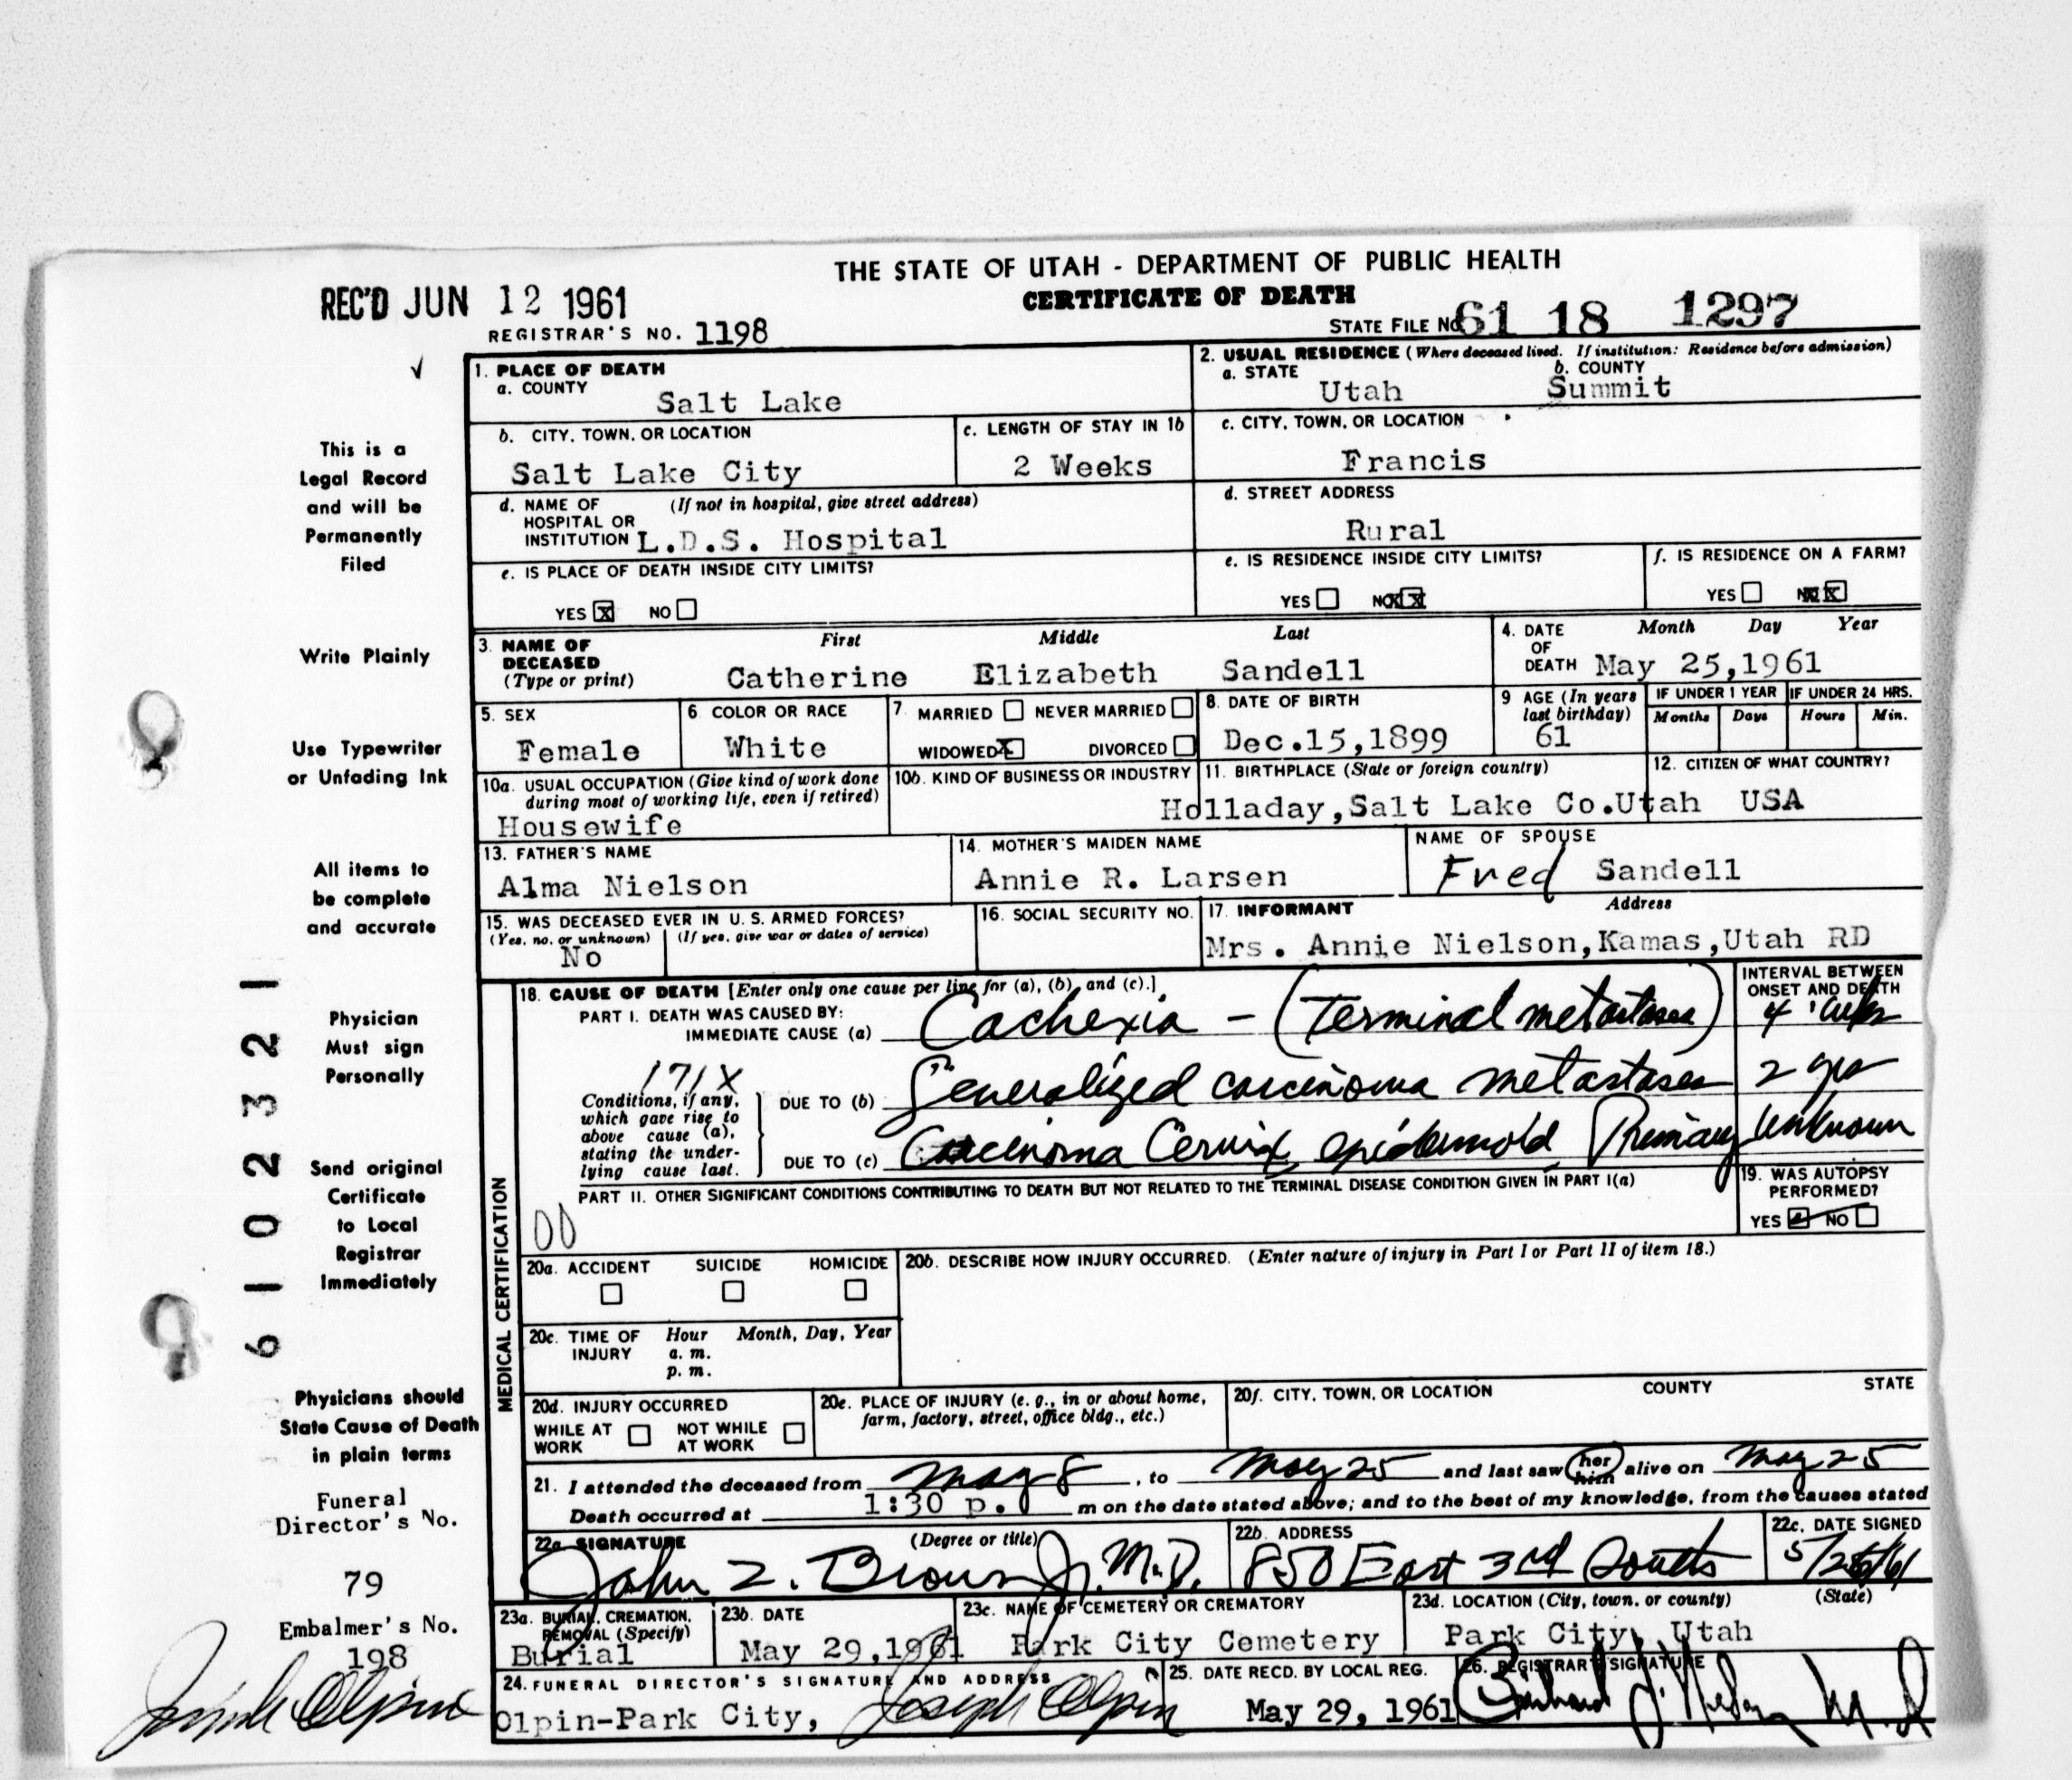 THE STATE OF UTAH - DEPARTMENT OF PUBLIC HEALTH
CERTIFICATE OF DEATH
REC'D JUN 12 1961
REGISTRAR'S NO. 1198
STATE FILE NO. 61 18 1297
This is a
Legal Record
and will be
Permanently
Filed
Write Plainly
Use Typewriter
or Unfading Ink
All items to
be complete
and accurate
Physician
Must sign
Personally
Send original
Certificate
to Local
Registrar
Immediately
Physicians should
State Cause of Death
in plain terms
Funeral
Director's No.
79
Embalmer's No.
198
Joseph Olpin
6 1 0 2 3 2 1
1. PLACE OF DEATH
a. COUNTY
Salt Lake
2. USUAL RESIDENCE (Where deceased lived. If institution: Residence before admission)
a. STATE b. COUNTY
Utah Summit
b. CITY, TOWN, OR LOCATION
Salt Lake City
c. LENGTH OF STAY IN 1b
2 Weeks
c. CITY, TOWN, OR LOCATION
Francis
d. NAME OF (If not in hospital, give street address)
HOSPITAL OR
INSTITUTION L.D.S. Hospital
d. STREET ADDRESS
Rural
e. IS PLACE OF DEATH INSIDE CITY LIMITS?
YES X NO
e. IS RESIDENCE INSIDE CITY LIMITS?
YES NO X
f. IS RESIDENCE ON A FARM?
YES NO X
3. NAME OF
DECEASED
(Type or print)
First Middle Last
Catherine Elizabeth Sandell
4. DATE
OF
DEATH
Month Day Year
May 25,1961
5. SEX
Female
6. COLOR OR RACE
White
7. MARRIED NEVER MARRIED
WIDOWED X DIVORCED
8. DATE OF BIRTH
Dec.15,1899
9 AGE (In years
last birthday)
61
IF UNDER 1 YEAR IF UNDER 24 HRS.
Months Days Hours Min.
10a. USUAL OCCUPATION (Give kind of work done
during most of working life, even if retired)
Housewife
10b. KIND OF BUSINESS OR INDUSTRY
11. BIRTHPLACE (State or foreign country)
Holladay,Salt Lake Co.Utah
12. CITIZEN OF WHAT COUNTRY?
USA
13. FATHER'S NAME
Alma Nielson
14. MOTHER'S MAIDEN NAME
Annie R. Larsen
NAME OF SPOUSE
Fred Sandell
15. WAS DECEASED EVER IN U. S. ARMED FORCES?
(Yes, no, or unknown) (If yes, give war or dates of service)
No
16. SOCIAL SECURITY NO.
17. INFORMANT Address
Mrs. Annie Nielson,Kamas,Utah RD
MEDICAL CERTIFICATION
18. CAUSE OF DEATH [Enter only one cause per line for (a), (b), and (c).]
INTERVAL BETWEEN
ONSET AND DEATH
PART I. DEATH WAS CAUSED BY:
IMMEDIATE CAUSE (a) Cachexia - (Terminal metastases) 4 wks
171X
Conditions, if any,
which gave rise to
above cause (a),
stating the under-
lying cause last.
DUE TO (b) Generalized carcinoma metastases 2 yrs
DUE TO (c) Carcinoma Cervix epidermoid Primary unknown
PART II. OTHER SIGNIFICANT CONDITIONS CONTRIBUTING TO DEATH BUT NOT RELATED TO THE TERMINAL DISEASE CONDITION GIVEN IN PART I(a)
00
19. WAS AUTOPSY
PERFORMED?
YES NO
20a. ACCIDENT SUICIDE HOMICIDE
20b. DESCRIBE HOW INJURY OCCURRED. (Enter nature of injury in Part I or Part II of item 18.)
20c. TIME OF Hour Month, Day, Year
INJURY a. m.
p. m.
20d. INJURY OCCURRED
WHILE AT NOT WHILE
WORK AT WORK
20e. PLACE OF INJURY (e. g., in or about home,
farm, factory, street, office bldg., etc.)
20f. CITY, TOWN, OR LOCATION COUNTY STATE
21. I attended the deceased from May 8, to May 25 and last saw her him alive on May 25
Death occurred at 1:30 p. m on the date stated above; and to the best of my knowledge, from the causes stated
22a. SIGNATURE (Degree or title)
John Z. Brown Jr. M.D.
22b. ADDRESS
850 East 3rd South
22c. DATE SIGNED
5/26/61
23a. BURIAL, CREMATION,
REMOVAL (Specify)
Burial
23b. DATE
May 29,1961
23c. NAME OF CEMETERY OR CREMATORY
Park City Cemetery
23d. LOCATION (City, town, or county) (State)
Park City, Utah
24. FUNERAL DIRECTOR'S SIGNATURE AND ADDRESS
Olpin-Park City, Joseph Olpin
25. DATE RECD. BY LOCAL REG.
May 29, 1961
26. REGISTRAR'S SIGNATURE